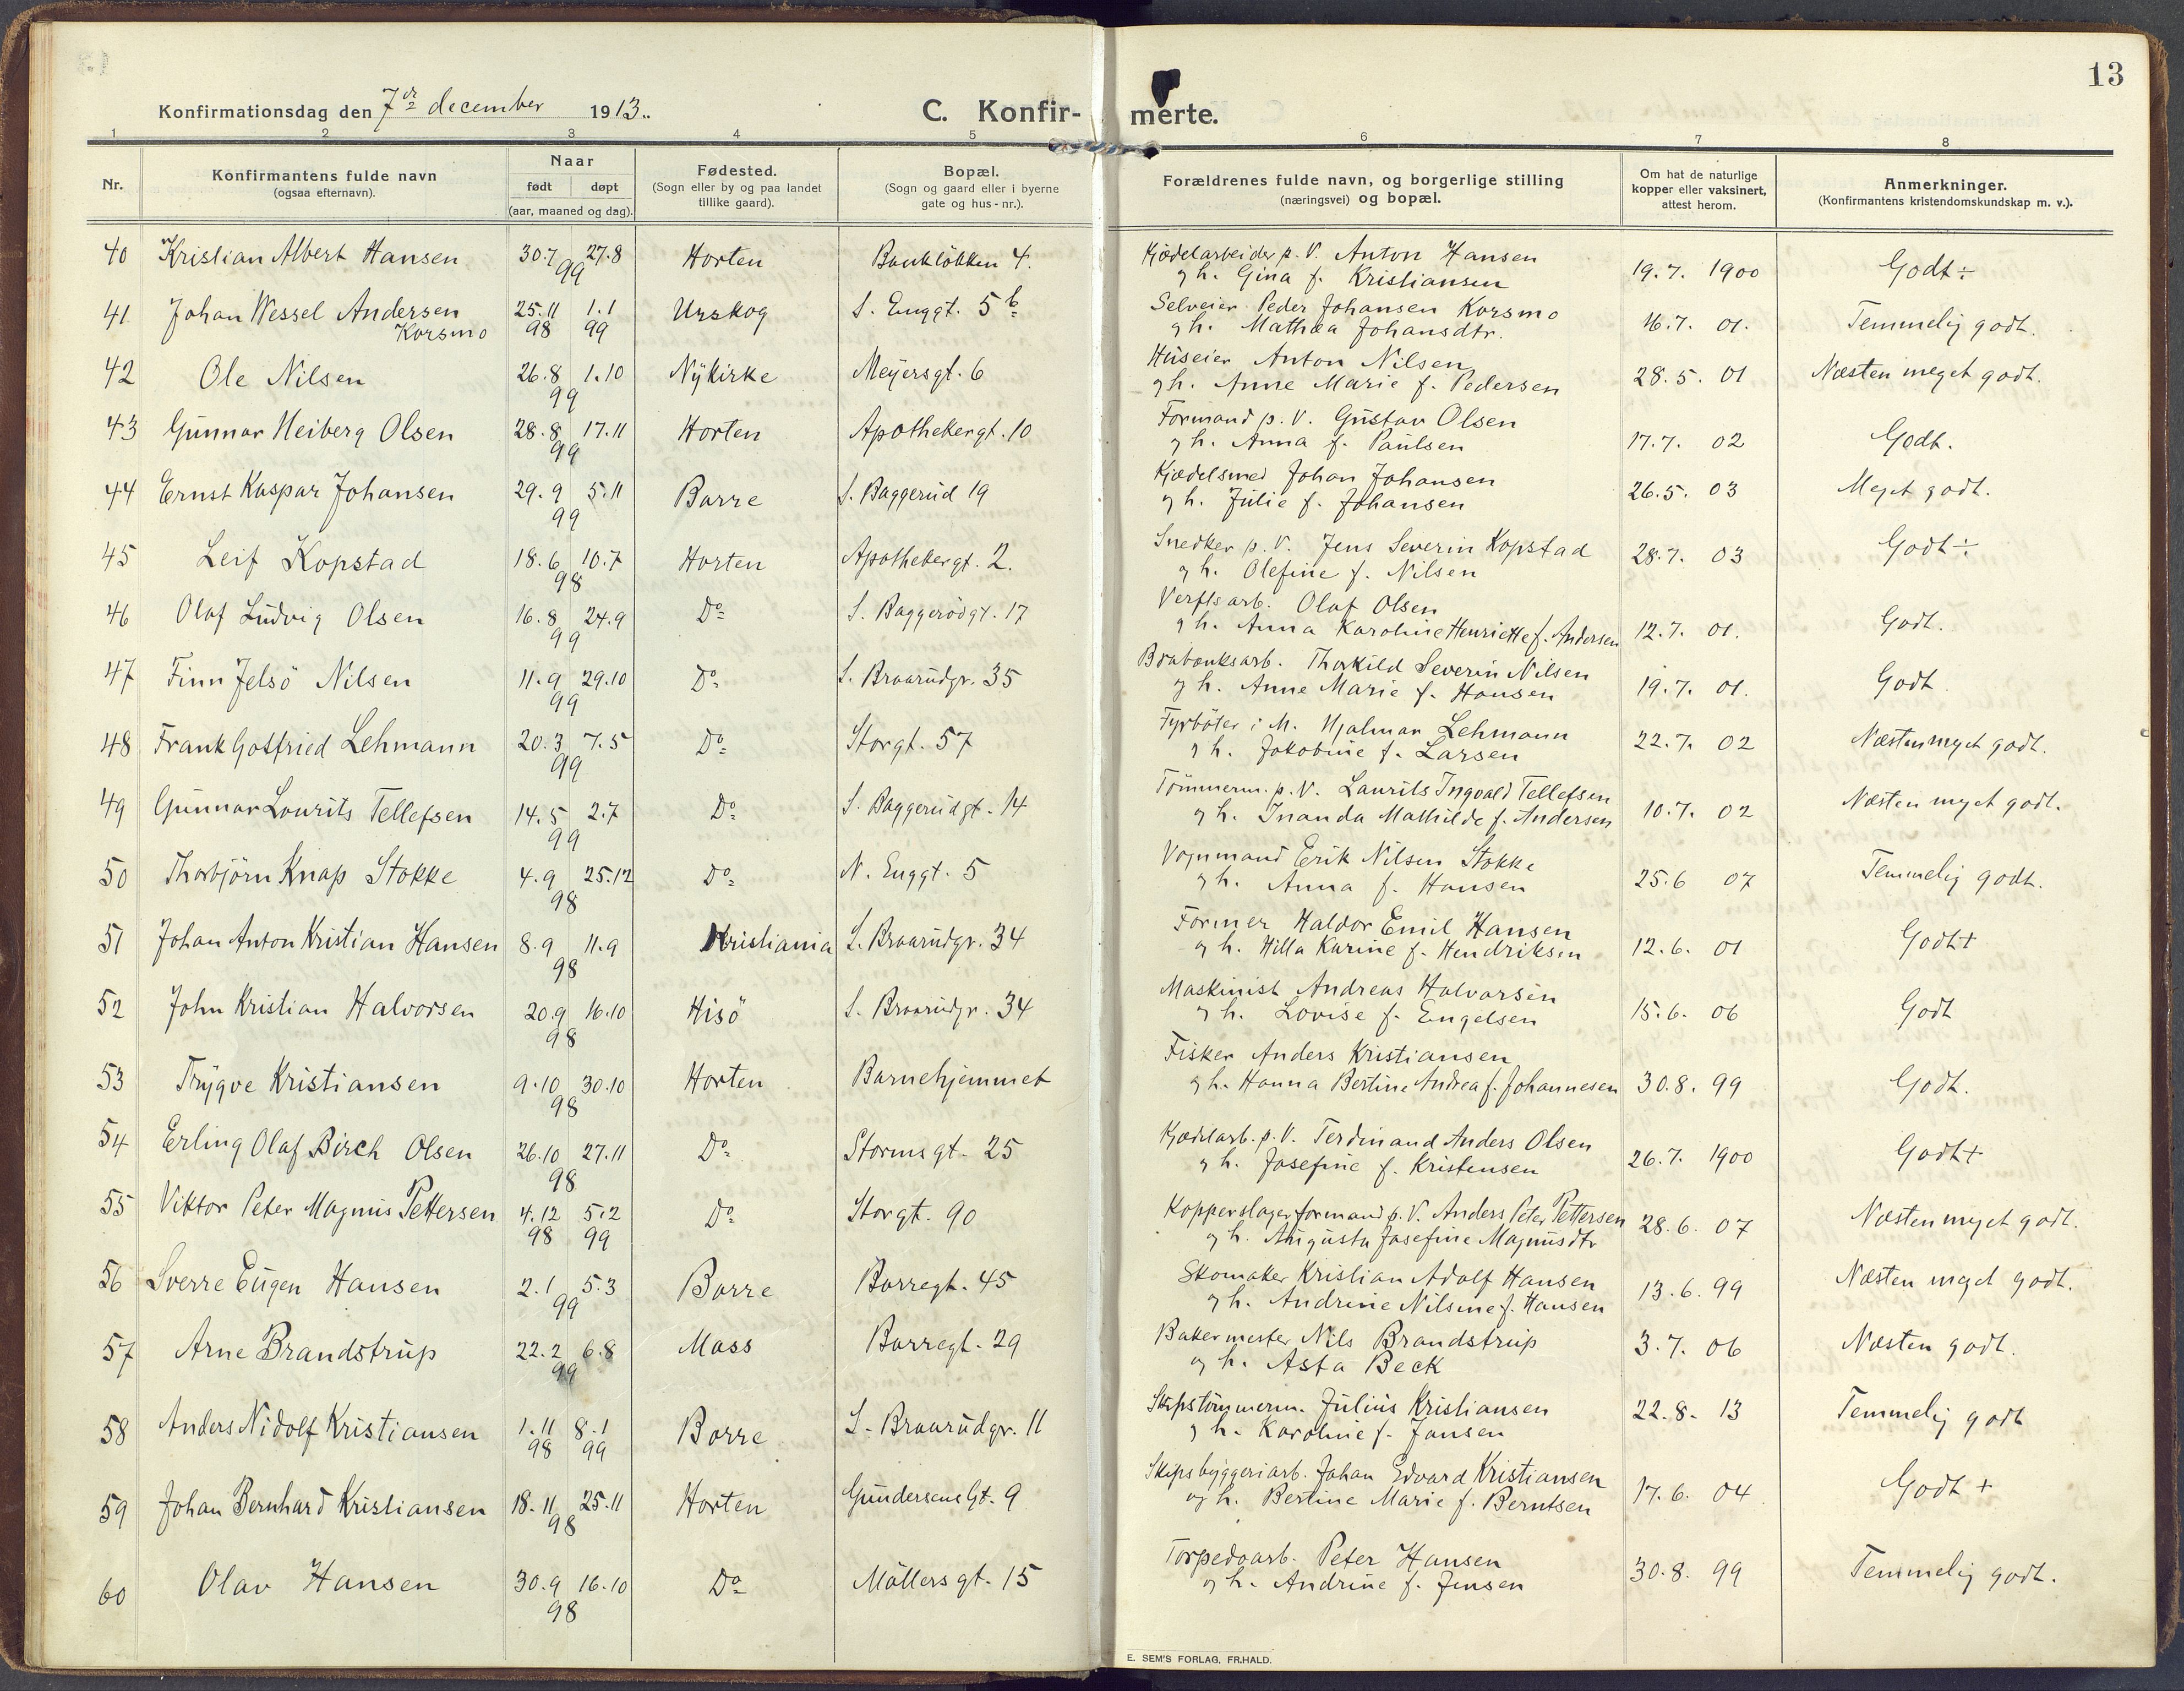 13
Konfirmationsdag den 7de december 1913.
C. Konfirmerte.
1 2 3 4 5 6 7 8
Nr.
Konfirmantens fulde navn
(ogsaa efternavn).
Naar
født døpt
(aar, maaned og dag).
Fødested.
(Sogn eller by og paa landet
tillike gaard).
Bopæl.
(Sogn og gaard eller i byerne
gate og hus-nr.).
Forældrenes fulde navn, og borgerlige stilling
(næringsvei) og bopæl.
Om hat de naturlige
kopper eller vaksinert,
attest herom.
Anmerkninger.
(Konfirmantens kristendomskundskap m. v.).
40 Kristian Albert Hansen 30.7 27.8 99 Horten Bankløkken 4. Kjedelarbeider p. V. Anton Hansen
og h. Gina f. Kristiansen 19.7. 1900 Godt ÷
41 Johan Wessel Andersen Korsmo 25.11 98 1.1 99 Urskog S. Enggt. 5 b Selveier Peder Johansen Korsmo
og h. Mathea Johansdtr. 16.7. 01. Temmelig godt.
42 Ole Nilsen 26.8 1.10 99 Nykirke Meyersgt. 6 Huseier Anton Nilsen
og h. Anne Marie f. Pedersen 28.5. 01 Næsten meget godt.
43 Gunnar Heiberg Olsen 28.8 17.11 99 Horten Apothekergt. 10 Formand p. V. Gustav Olsen
og h. Anna f. Paulsen 17.7. 02 Godt.
44 Ernst Kaspar Johansen 29.9 5.11 99 Borre S. Baggerud 19 Kjedelsmed Johan Johansen
og h. Julie f. Johansen 26.5. 03 Meget godt.
45 Leif Kopstad 18.6 10.7 98 Horten Apothekergt. 2. Snedker p. V. Jens Severin Kopstad
og h. Olefine f. Nilsen 28.7. 03 Godt ÷
46 Olaf Ludvig Olsen 16.8 24.9 99 Do S. Baggerødgt. 17 Verftsarb. Olaf Olsen
og h. Anna Karoline Henriette f. Andersen 12.7. 01. Godt.
47 Finn Jelsö Nilsen 11.9 29.10 99 Do S. Braarudgr. 35 Brabænksarb. Thorkild Severin Nilsen
og h. Anne Marie f. Hansen 19.7. 01. Godt
48 Frank Gotfried Lehmann 20.3 7.5 99 Do Storgt. 57 Fyrböter i M. Hjalmar Lehmann
og h. Jakobine f. Larsen 22.7. 02 Næsten meget godt.
49 Gunnar Lourits Tellefsen 14.5 2.7 99 Do S. Baggerudgt. 14 Tömmerm. p. V. Laurits Ingvald Tellefsen
og h. Inanda Mathilde f. Andersen 10.7. 02 Næsten meget godt.
50 Thorbjörn Knap Stokke 4.9 25.12 98 Do N. Enggt. 5 Vognmand Erik Nilsen Stokke
og h. Anna f. Hansen 25.6 07 Temmelig godt.
51 Johan Anton Kristian Hansen 8.9 11.9 98 Kristiania S. Braarudgr. 34 Former Haldor Emil Hansen
og h. Hilla Karine f. Hendriksen 12.6. 01 Godt +
52 John Kristian Halvorsen 20.9 16.10 98 Hisö S. Braarudgr. 34 Maskinist Andreas Halvorsen
og h. Lovise f. Engelsen 15.6. 06 Godt
53 Trygve Kristiansen 9.10 30.10 98 Horten Barnehjemmet Fisker Anders Kristiansen
og h. Hanna Bertine Andrea f. Johannesen 30.8. 99 Godt.
54 Erling Olaf Birch Olsen 26.10 27.11 98 Do Stormsgt. 25 Kjedelarb. p. V. Ferdinand Anders Olsen
og h. Josefine f. Kristensen 26.7. 1900 Godt +
55 Viktor Peter Magnus Pettersen 4.12 98 5.2 99 Do Storgt. 90 Kopperslagerformand p. V. Anders Peter Pettersen
og h. Augusta Josefine Magnusdtr 28.6. 07 Næsten meget godt.
56 Sverre Eugen Hansen 2.1 5.3 99 Borre Borregt. 45 Skomaker Kristian Adolf Hansen
og h. Andrine Nilsine f. Hansen 13.6. 99 Næsten meget godt.
57 Arne Brandstrup 22.2 6.8 99 Moss Borregt. 29 Bakermester Nils Brandstrup
og h. Asta Beck 3.7. 06 Næsten godt.
58 Anders Nidolf Kristiansen 1.11 98 8.1 99 Borre S. Braarudgr. 11 Skipstömmerm. Julius Kristiansen
og h. Karoline f. Jansen 22.8. 13 Temmelig godt
59 Johan Bernhard Kristiansen 18.11 25.11 98 Horten Gundersens Gt. 9 Skipsbyggeriarb. Johan Edvard Kristiansen
og h. Bertine Marie f. Berntsen 17.6. 04 Godt +
60 Olav Hansen 30.9 16.10 98 Do Möllersgt. 15 Torpedoarb. Peter Hansen
og h. Andrine f. Jensen 30.8. 99 Temmelig godt.
E. SEM'S FORLAG, FR.HALD.